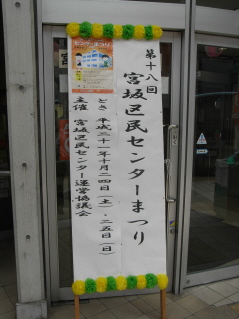 第十八回
宮坂区民センターまつり
とき 平成二十一年十月二四日(土)・二五日(日)
主催 宮坂区民センター運営協議会